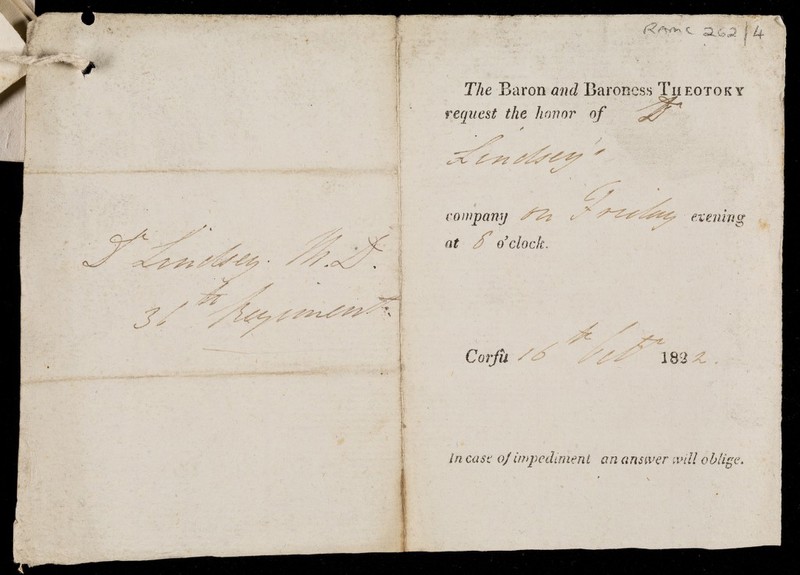 RAMC 262/4
The Baron and Baroness THEOTOKY
request the honor of Dr
Lindsey's
company on Friday evening
at 8 o'clock.
Corfù 16th Octr 1822.
In case of impediment an answer will oblige.
Dr Lindsey. M.D.
36th Regiment